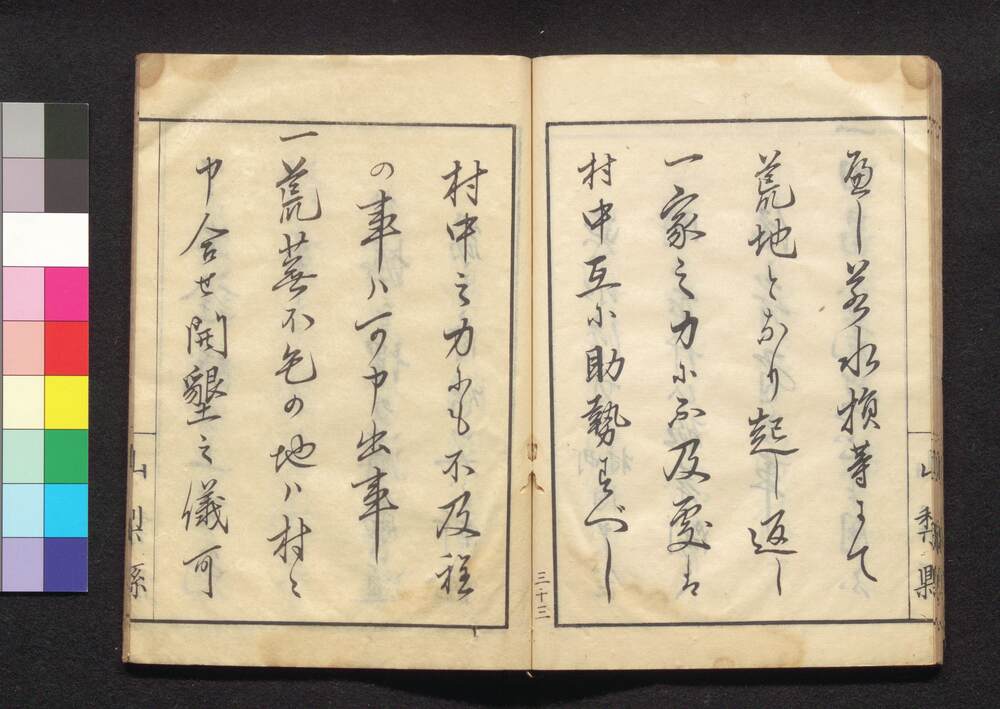 べし若水損等にて
荒地となり起し返し
一家之力に不及処は
村中互に助勢すべし
村中之力にも不及程
の事ハ可申出事
一荒蕪不毛の地ハ村々
申合せ開墾之儀可
山梨縣
三十三
山梨縣